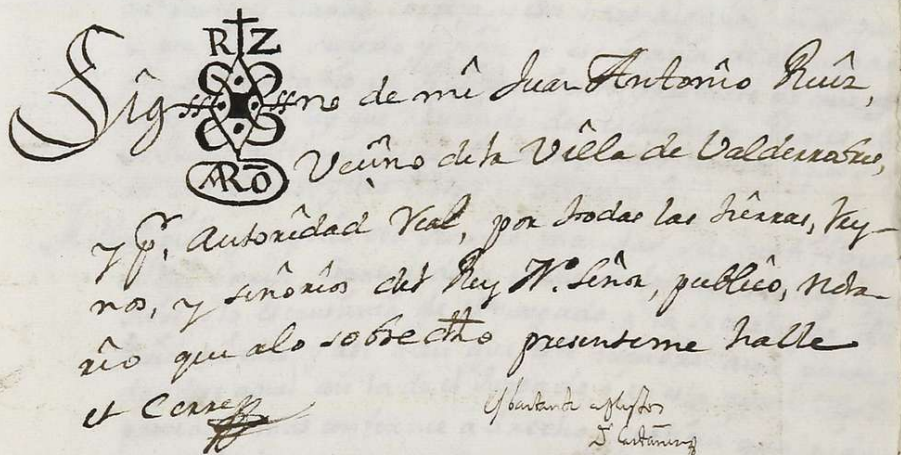 R Z
Sig no de mi Juan Antonio Ruiz,
ARO Vecino de la Villa de Valderrobres,
y pr. Autoridad Real, por todas las tierras, Rey-
nos, y señorios del Rey No. Señor, publico, Nota-
rio que alo sobredho presenteme halle
et Cerre